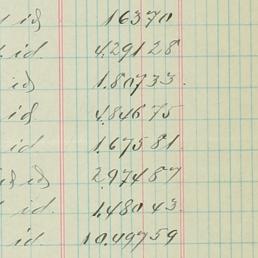 id 16370
id 4.29128
id 1.80733.
id 4.84675
id 1.67581
id 2.97487
id. 1.480.43.
id 10.49759